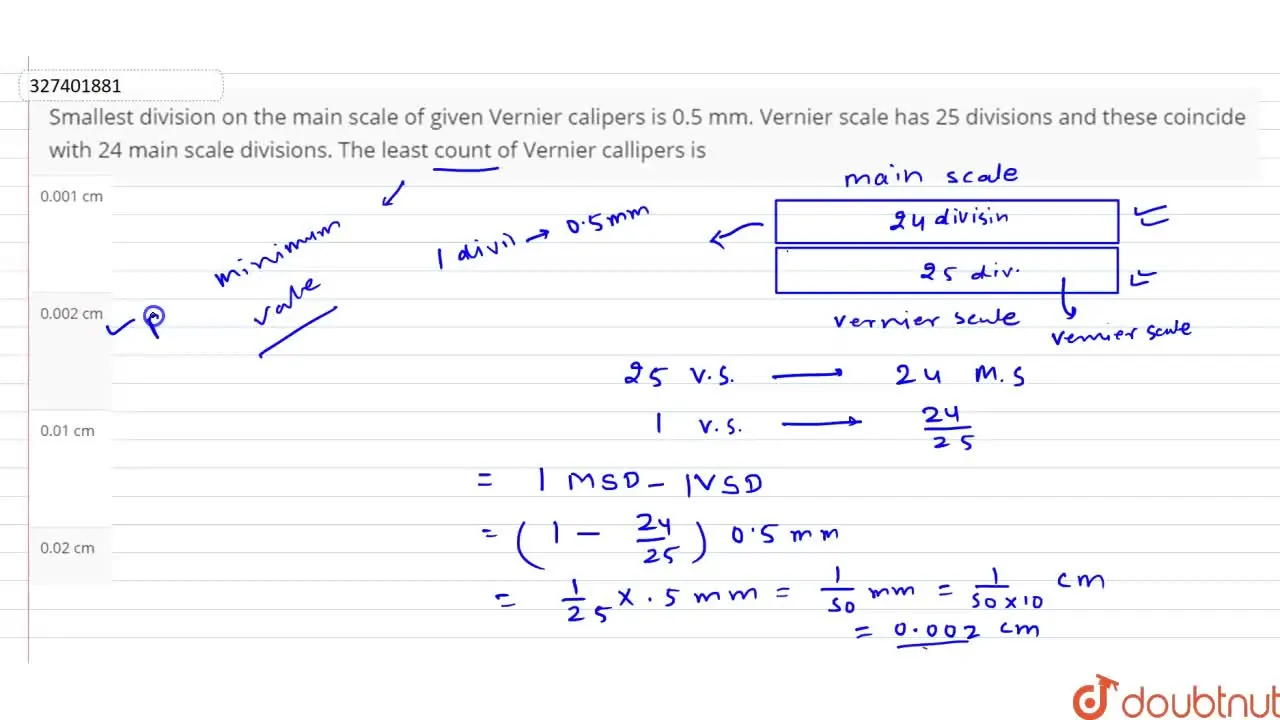 327401881
Smallest division on the main scale of given Vernier calipers is 0.5 mm. Vernier scale has 25 divisions and these coincide
with 24 main scale divisions. The least count of Vernier callipers is
0.001 cm
0.002 cm
0.01 cm
0.02 cm
minimum
vale
1 divii → 0.5 mm
main scale
24 divisin
25 div.
vernier scale
vernier scale
25 v.s. → 24 M.S
1 v.s. → 24/25
= 1 MSD - 1VSD
= (1 - 24/25) 0.5 mm
= 1/25 × .5 mm = 1/50 mm = 1/50×10 cm
= 0.002 cm
doubtnut